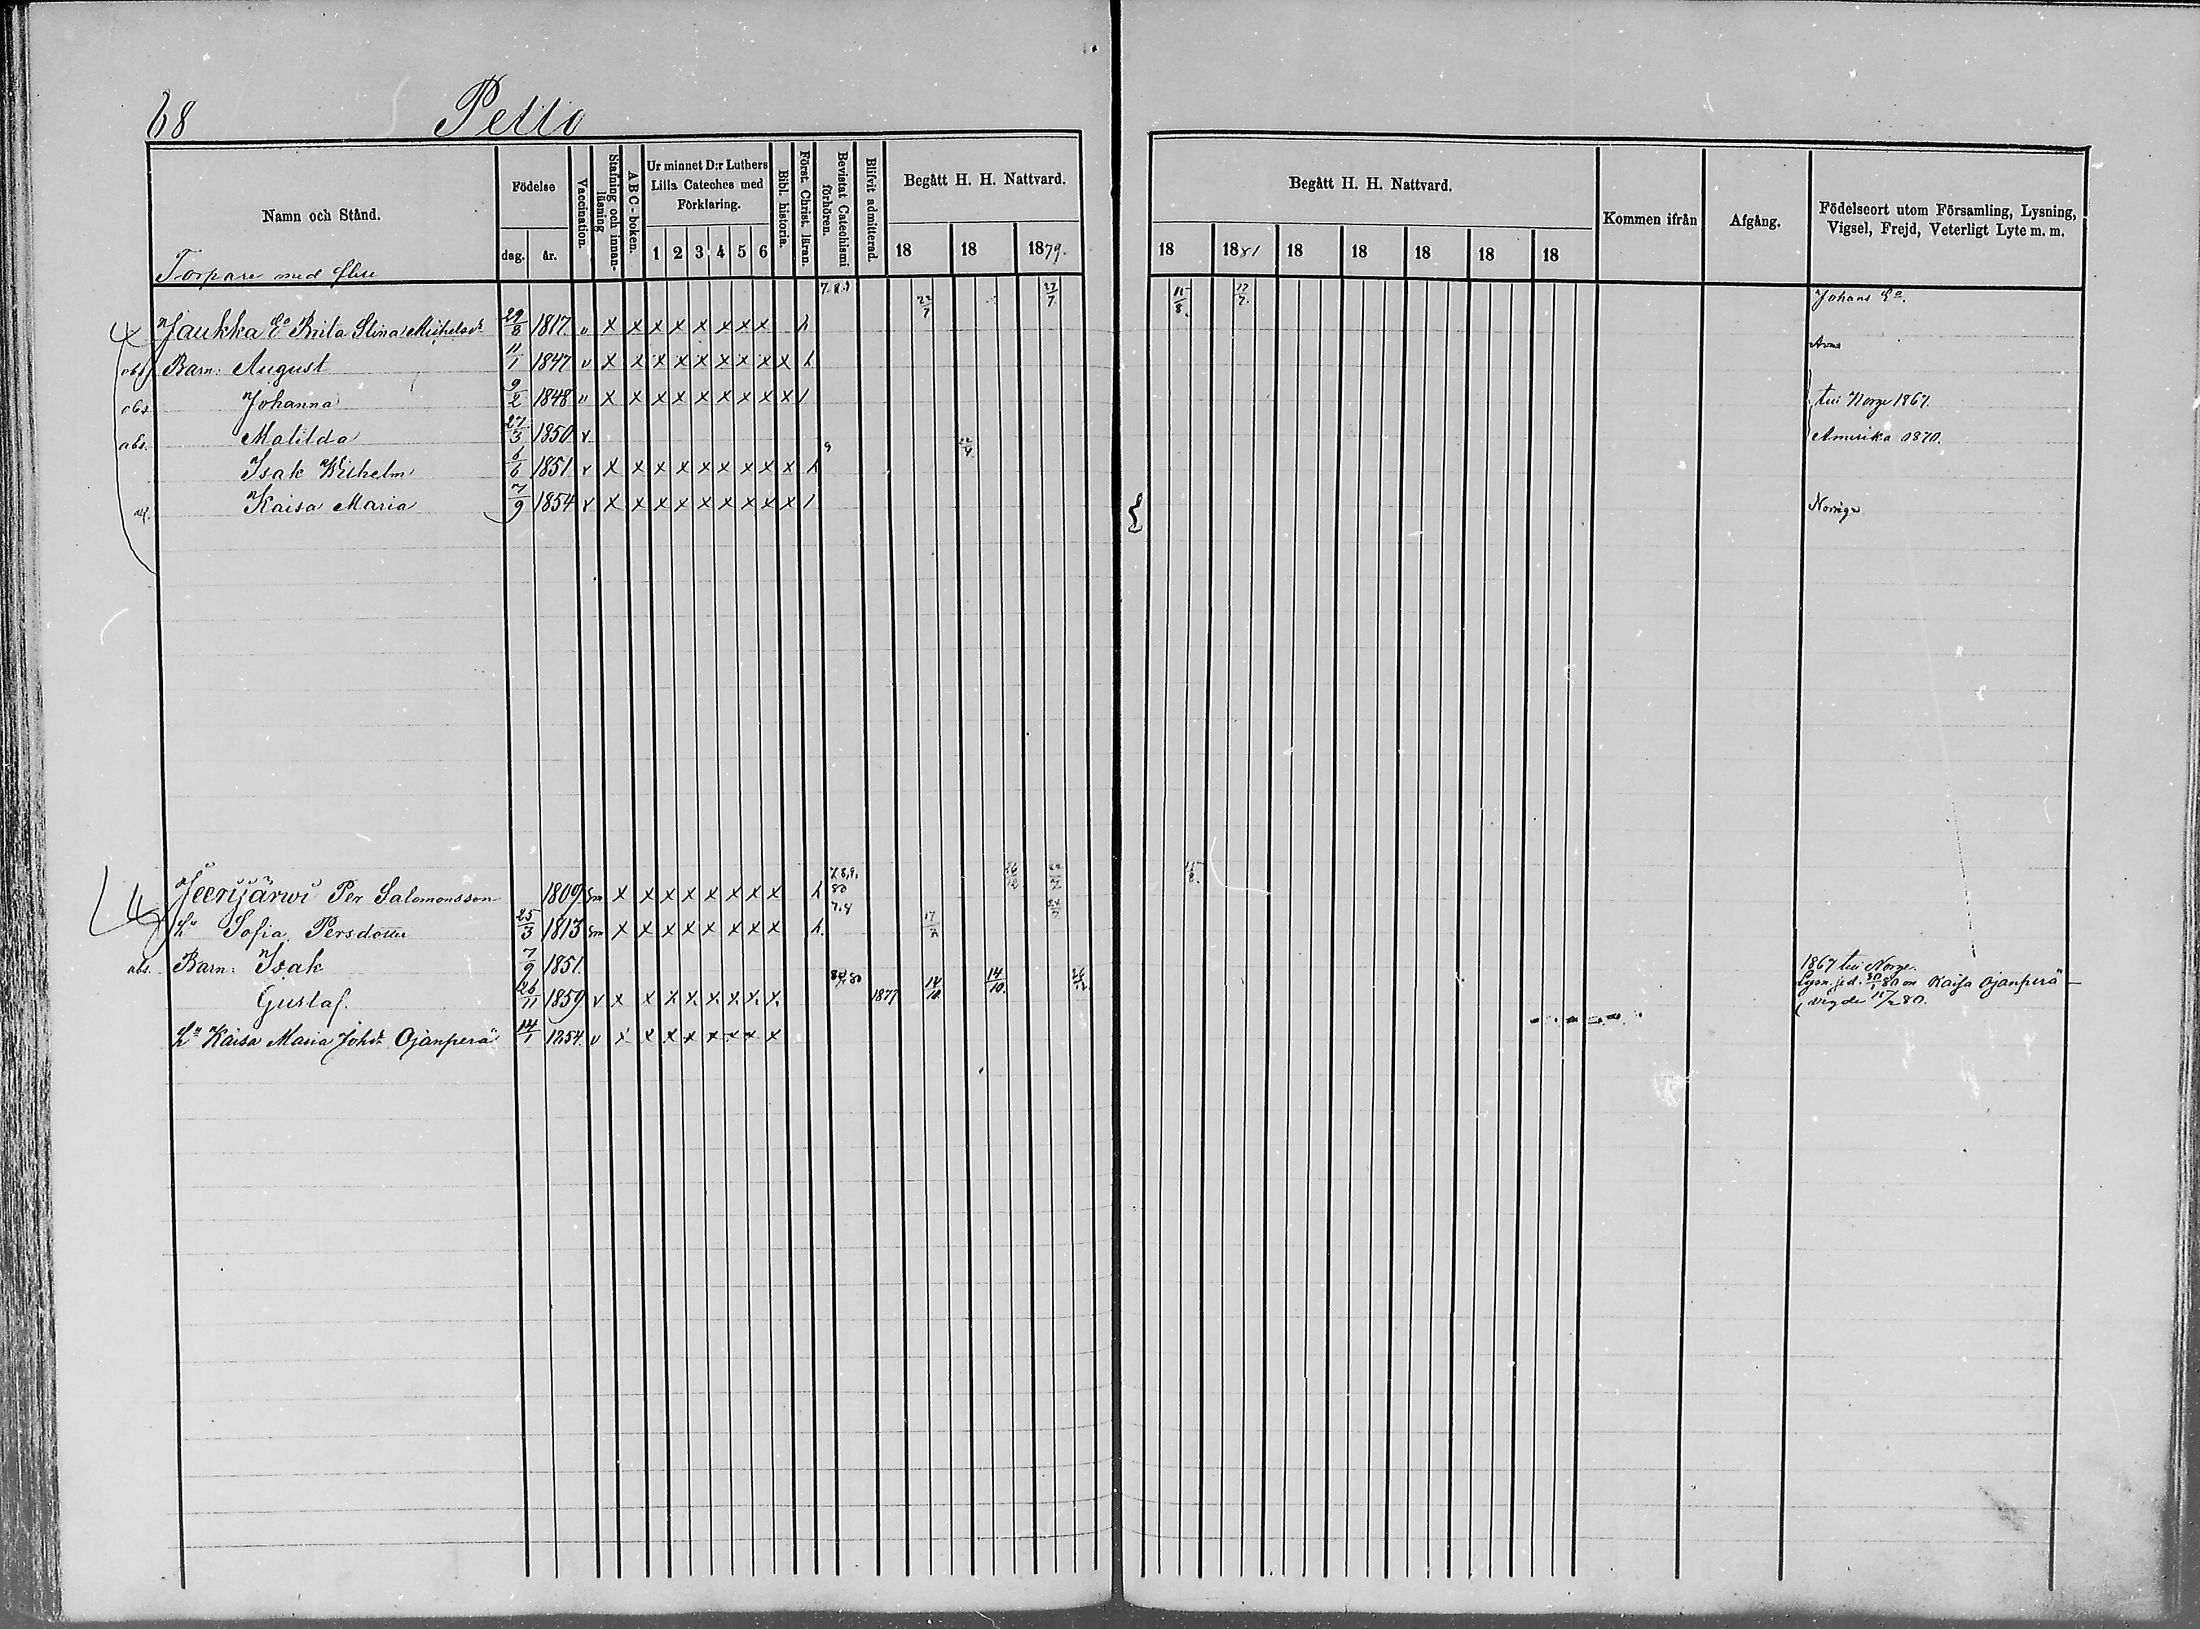 68 Pello
Namn och Stånd.
Födelse
dag. år.
Vaccination.
Stafning och innanläsning
ABC-boken.
Ur minnet D:r Luthers
Lilla Cateches med
Förklaring.
1 2 3 4 5 6
Bibl. historia.
Först. Christ. läran.
Bevistat Catechismi förhören.
Blifvit admitterad.
Begått H. H. Nattvard.
18 18 1879.
Begått H. H. Nattvard.
18 1881 18 18 18 18 18
Kommen ifrån
Afgång.
Födelseort utom Församling, Lysning,
Vigsel, Frejd, Veterligt Lyte m. m.
Torpare med flere
Jaukka E:a Brita Stina Michelsdr 29/8 1817 v x x x x x x x x h 7.8.9 22/7 27/7 11/8. 17/7. Johans E:a.
obs Barn: August 11/1 1847 v x x x x x x x x x h
obs. Johanna 9/2 1848 v x x x x x x x x x / till Norge 1867.
abs. Matilda 27/3 1850 v Amerika 1870.
Isak Wilhelm 6/6 1851 v x x x x x x x x x h 9 22/4
Kaisa Maria 7/9 1854 v x x x x x x x x x / Norrige
Jeerijärwi Per Salomonsson 1809 sm x x x x x x x x h 7.8.9. 80 26/12 22/7 15/8.
h:u Sofia Persdotter 25/3 1813 sm x x x x x x x x h. 7.8 17/
abs. Barn: Isak 7/9 1851. 1867 till Norge.
Gustaf. 26/11 1859 v x x x x x x x x 80 1877 14/10. 14/10. 26/12. Lysn. j.d. 30/1 80 m Kaisa Ojanperä
vigde 15/2 80.
h:u Kaisa Maria Johdr Ojanperä 14/1 1854. v x x x x x x x x